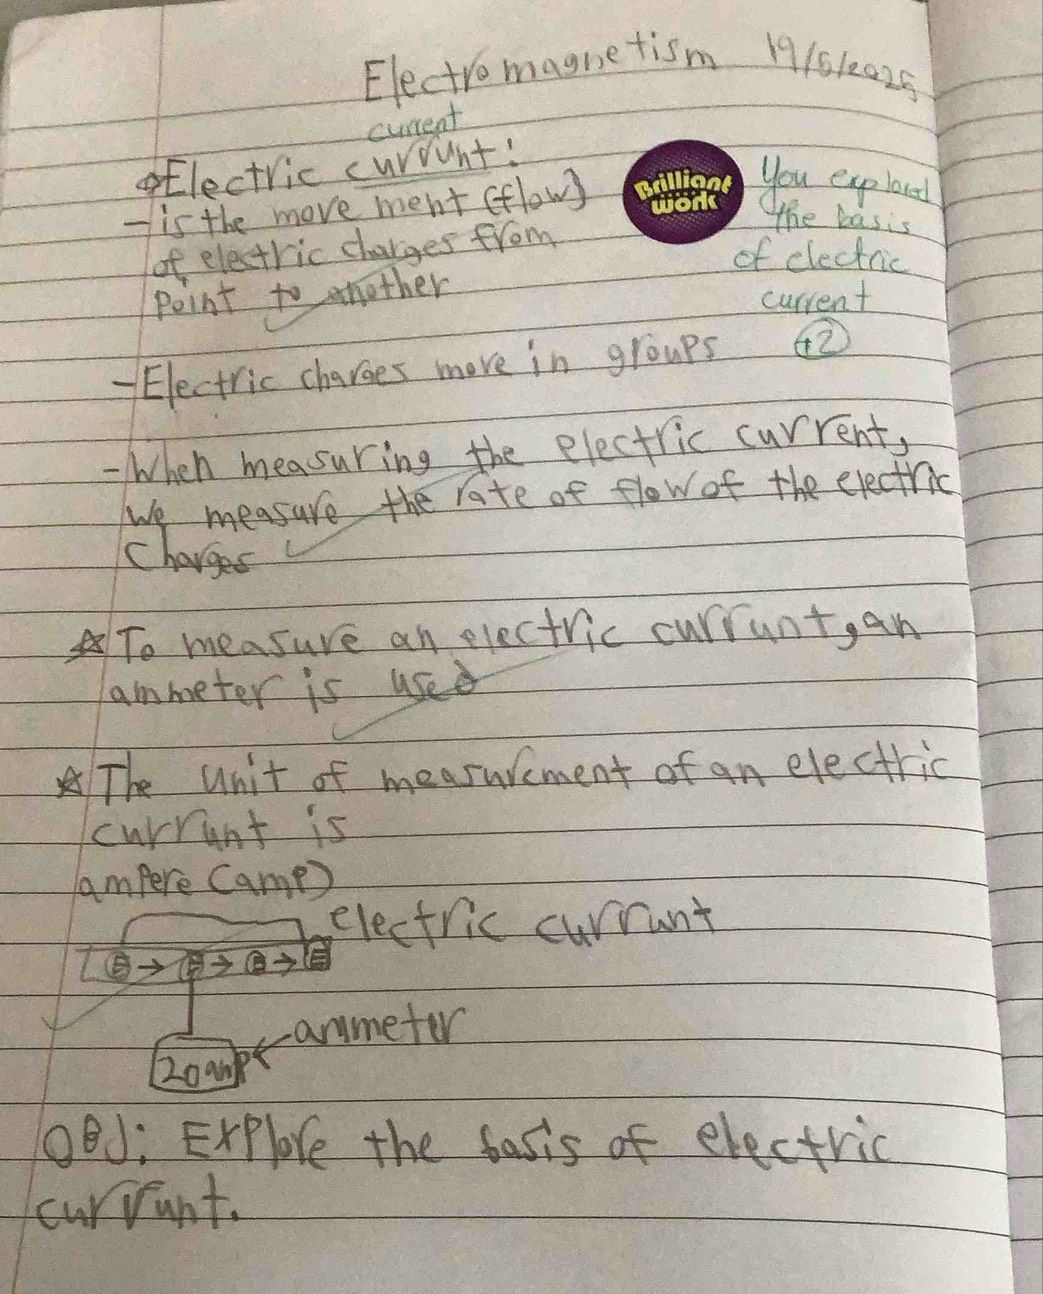 Electromagnetism 19/5/2025
current
Electric currunt:
- is the move ment (flow)
of electric charges from
Point to another
Brilliant
work
You explored
the basis
of electric
current
+2
- Electric charges move in groups
- When measuring the electric current,
we measure the rate of flow of the electric
Charges
To measure an electric currunt, an
ammeter is used
The unit of measurement of an electric
currunt is
ampere (amp)
electric currunt
ammeter
20 amp
OBJ: Explore the basis of electric
currunt.